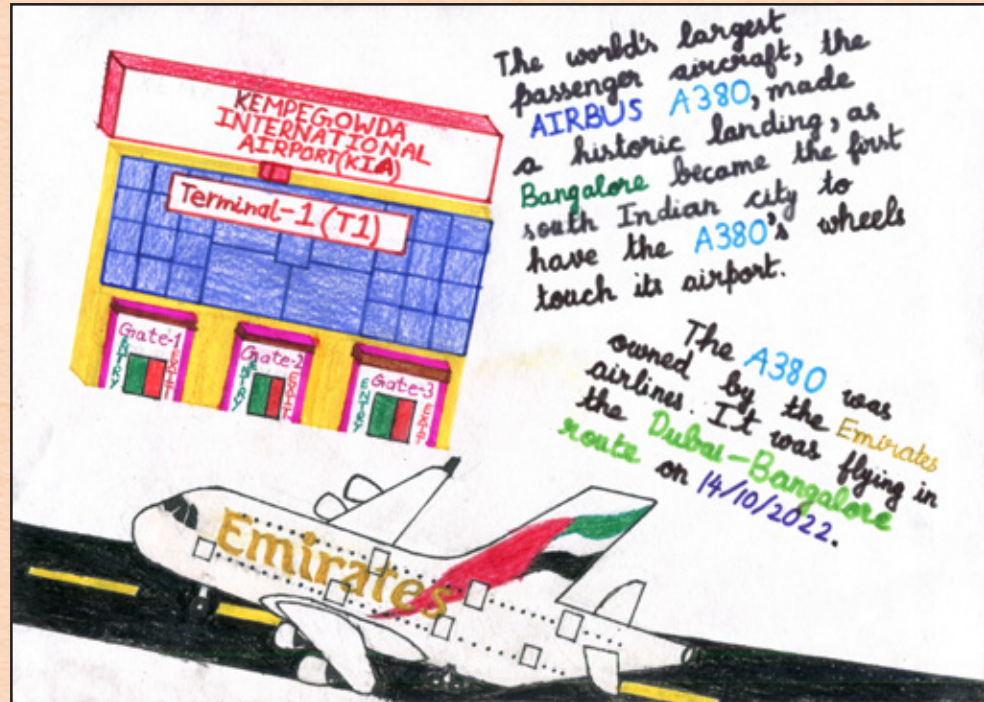 KEMPEGOWDA
INTERNATIONAL
AIRPORT(KIA)
Terminal-1 (T1)
Gate-1
ENTRY
EXIT
Gate-2
ENTRY
EXIT
Gate-3
ENTRY
EXIT
The world's largest
passenger aircraft, the
AIRBUS A380, made
a historic landing, as
Bangalore became the first
south Indian city to
have the A380's wheels
touch its airport.
The A380 was
owned by the Emirates
airlines. It was flying in
the Dubai-Bangalore
route on 14/10/2022.
Emirates